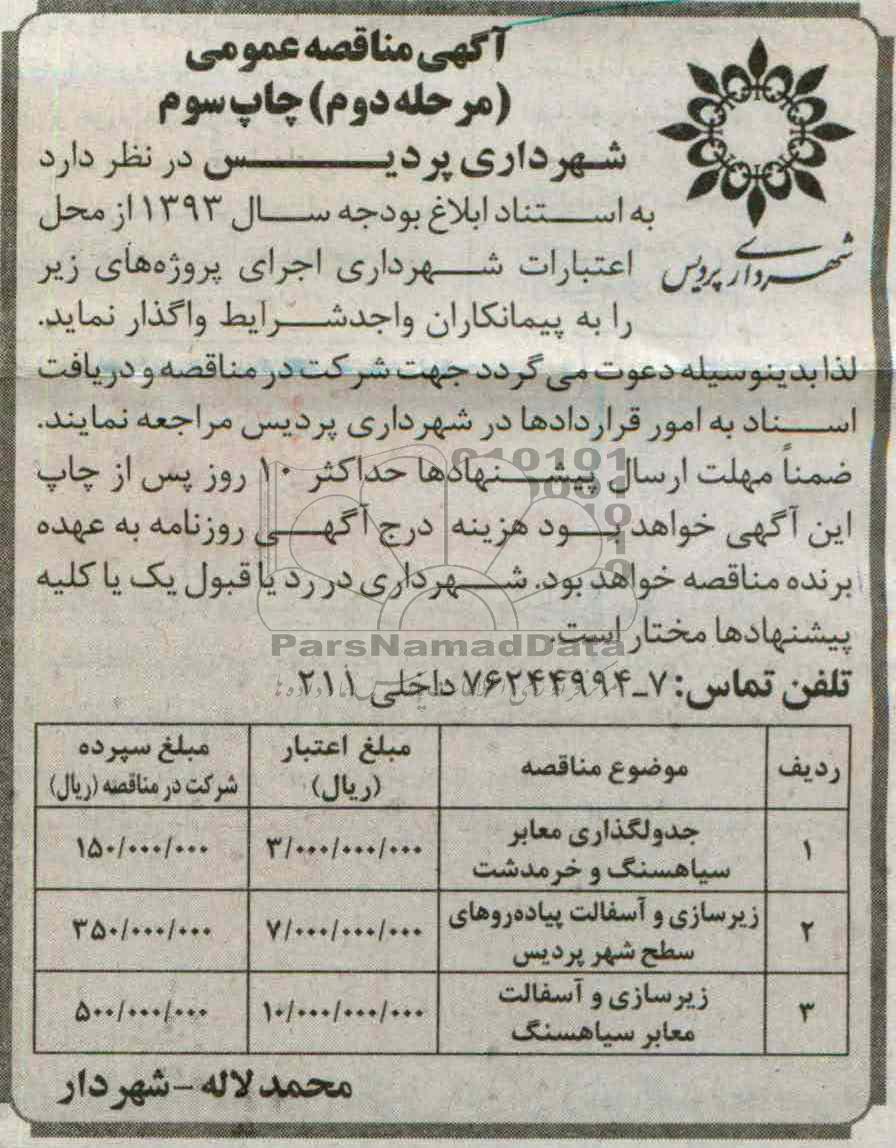 آگهی مناقصه عمومی
(مرحله دوم) چاپ سوم
شهرداری پردیس در نظر دارد
به استناد ابلاغ بودجه سال ۱۳۹۳ از محل
شهرداری پردیس
اعتبارات شهرداری اجرای پروژه‌های زیر
را به پیمانکاران واجدشرایط واگذار نماید.
لذا بدینوسیله دعوت می گردد جهت شرکت در مناقصه و دریافت
اسناد به امور قراردادها در شهرداری پردیس مراجعه نمایند.
ضمناً مهلت ارسال پیشنهادها حداکثر ۱۰ روز پس از چاپ
این آگهی خواهد بود هزینه درج آگهی روزنامه به عهده
برنده مناقصه خواهد بود. شهرداری در رد یا قبول یک یا کلیه
پیشنهادها مختار است.
ParsNamadData
تلفن تماس: ۷ـ۷۶۲۴۴۹۹۴ داخلی ۲۱۱
ردیف موضوع مناقصه مبلغ اعتبار (ریال) مبلغ سپرده شرکت در مناقصه (ریال)
۱ جدولگذاری معابر سیاهسنگ و خرمدشت ۳/۰۰۰/۰۰۰/۰۰۰ ۱۵۰/۰۰۰/۰۰۰
۲ زیرسازی و آسفالت پیاده‌روهای سطح شهر پردیس ۷/۰۰۰/۰۰۰/۰۰۰ ۳۵۰/۰۰۰/۰۰۰
۳ زیرسازی و آسفالت معابر سیاهسنگ ۱۰/۰۰۰/۰۰۰/۰۰۰ ۵۰۰/۰۰۰/۰۰۰
محمد لاله - شهردار